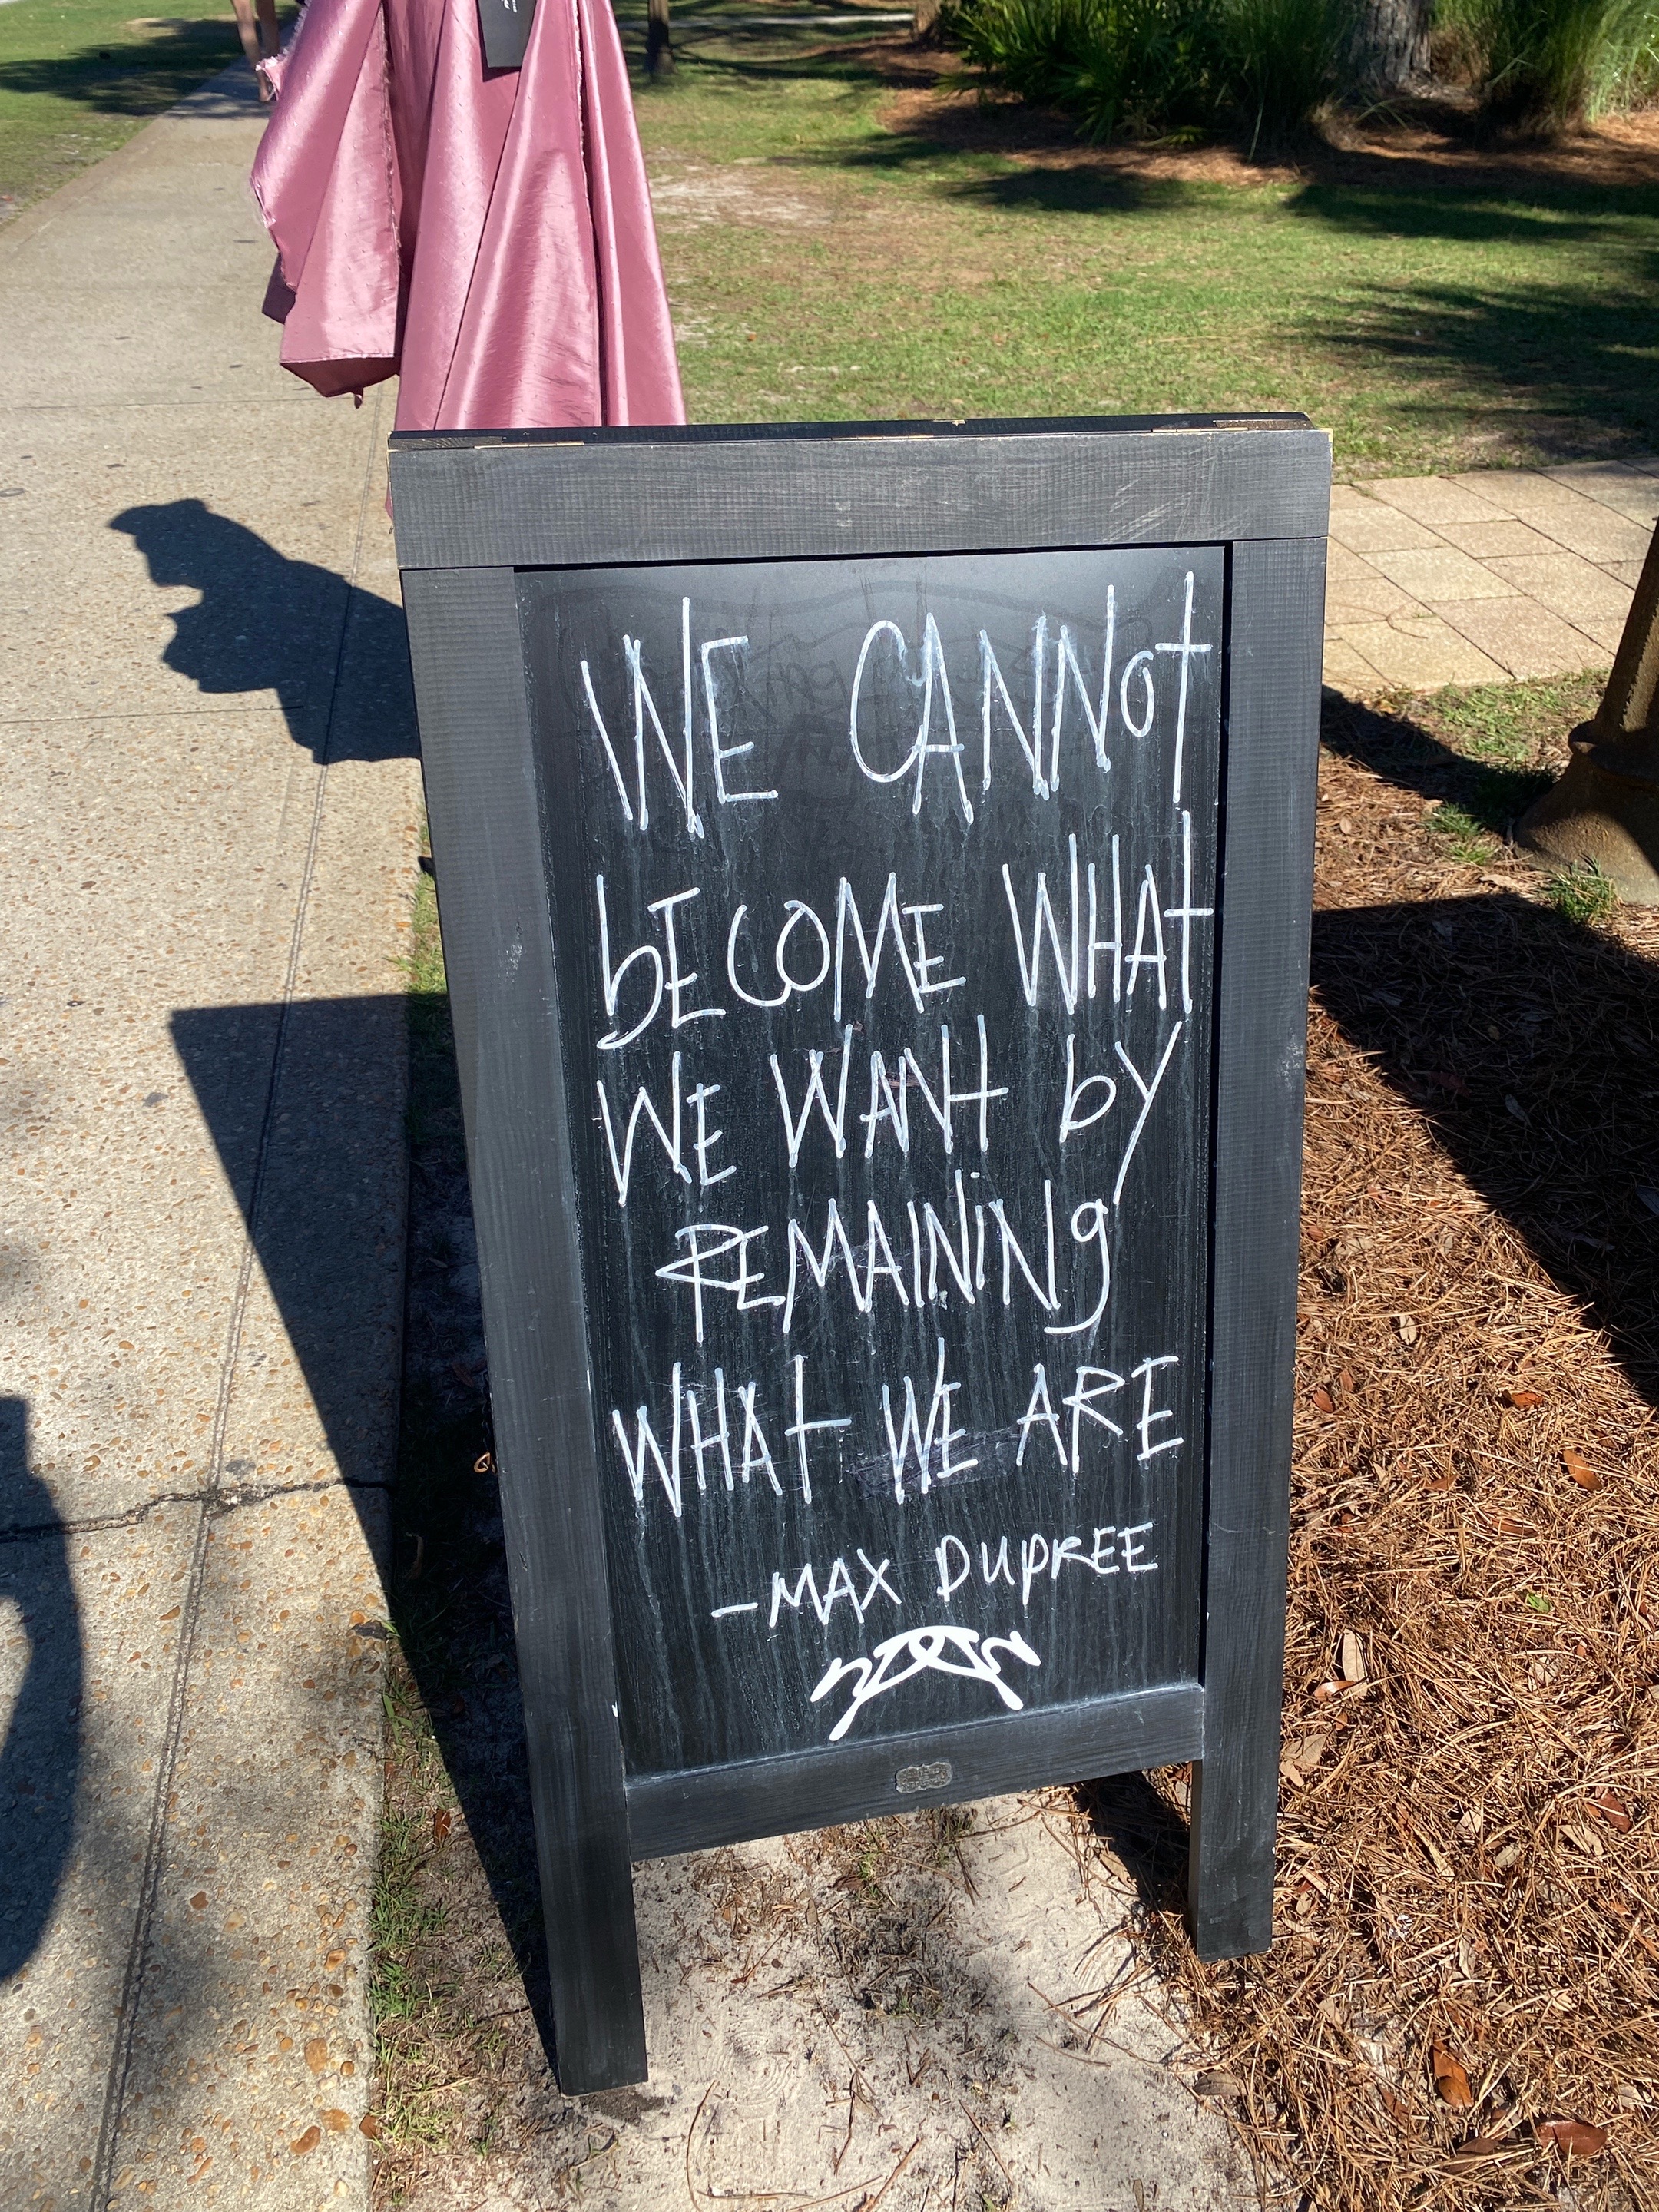 WE CANNOT
bECOME WHAT
WE WANT bY
REMAINiNg
WHAT WE ARE
-MAX DUpREE